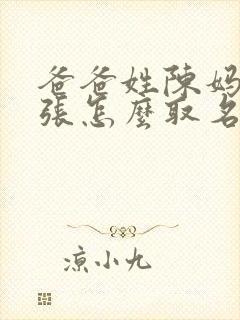 爸爸姓陳媽
張怎麼取名
涼小九